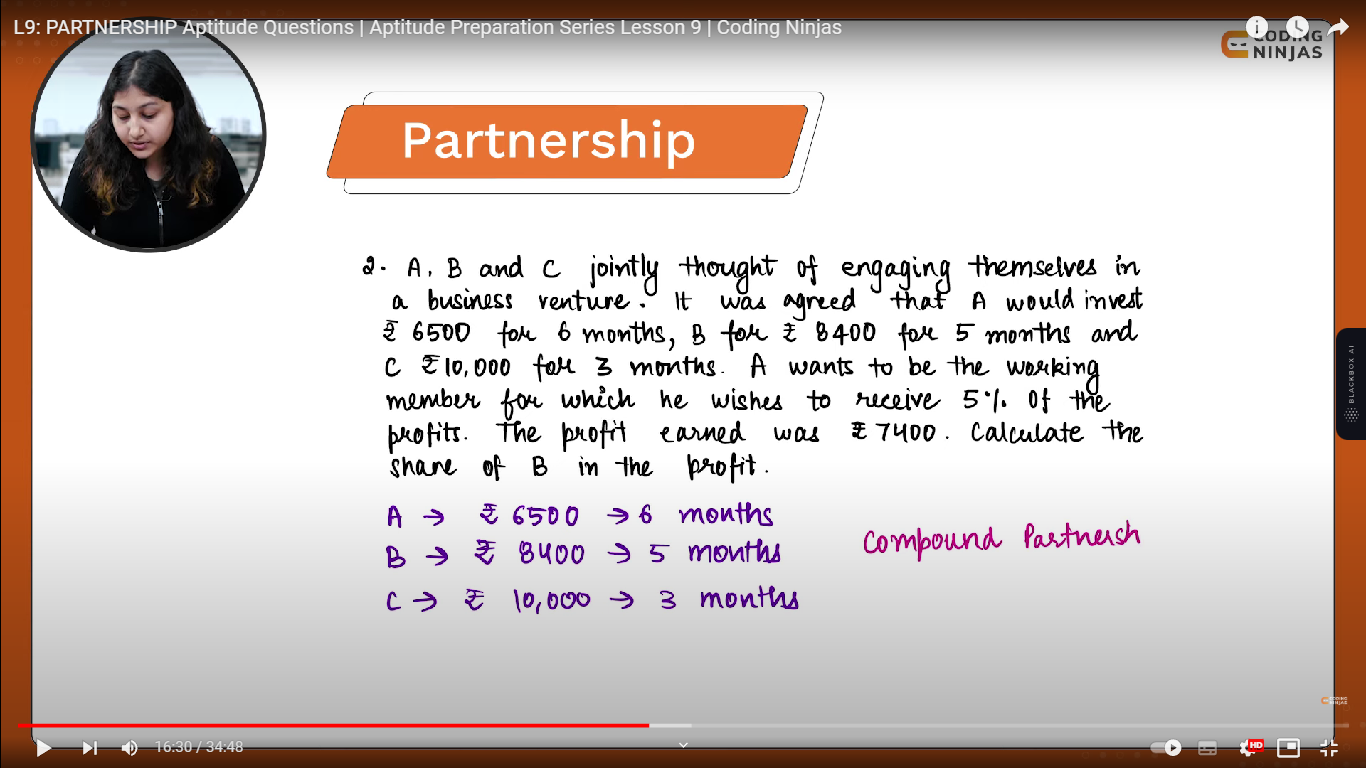 L9: PARTNERSHIP Aptitude Questions | Aptitude Preparation Series Lesson 9 | Coding Ninjas
CODING
NINJAS
Partnership
2. A, B and C jointly thought of engaging themselves in
a business venture. It was agreed that A would invest
₹ 6500 for 6 months, B for ₹ 8400 for 5 months and
C ₹ 10,000 for 3 months. A wants to be the working
member for which he wishes to receive 5% of the
profits. The profit earned was ₹ 7400. Calculate the
share of B in the profit.
A → ₹ 6500 → 6 months
B → ₹ 8400 → 5 months
C → ₹ 10,000 → 3 months
Compound Partnersh
BLACKBOX AI
CODING
NINJAS
16:30 / 34:48
HD